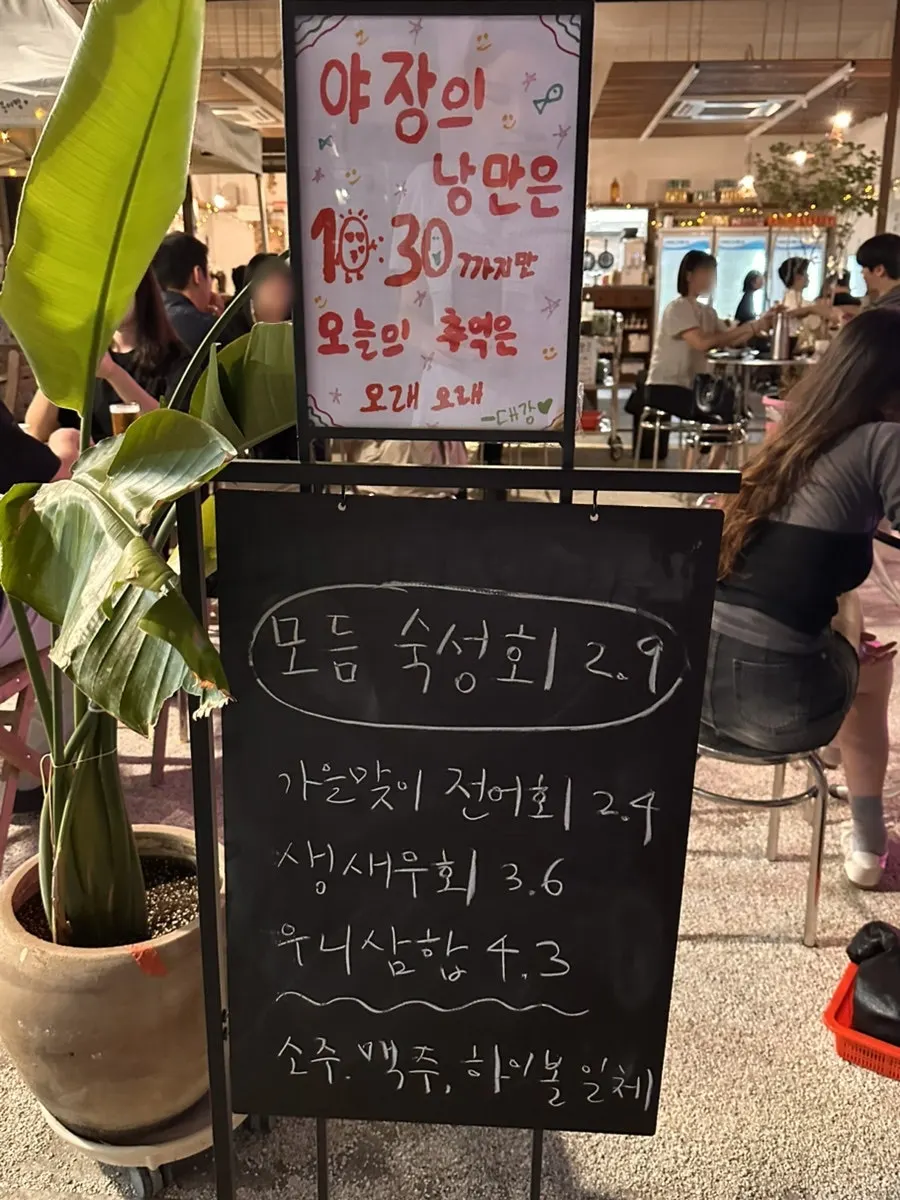 야장의
낭만은
10:30까지만
오늘의 추억은
오래 오래
-대감
모듬 숙성회 2.9
가을맞이 전어회 2.4
생새우회 3.6
우니삼합 4.3
소주. 맥주, 하이볼 일체